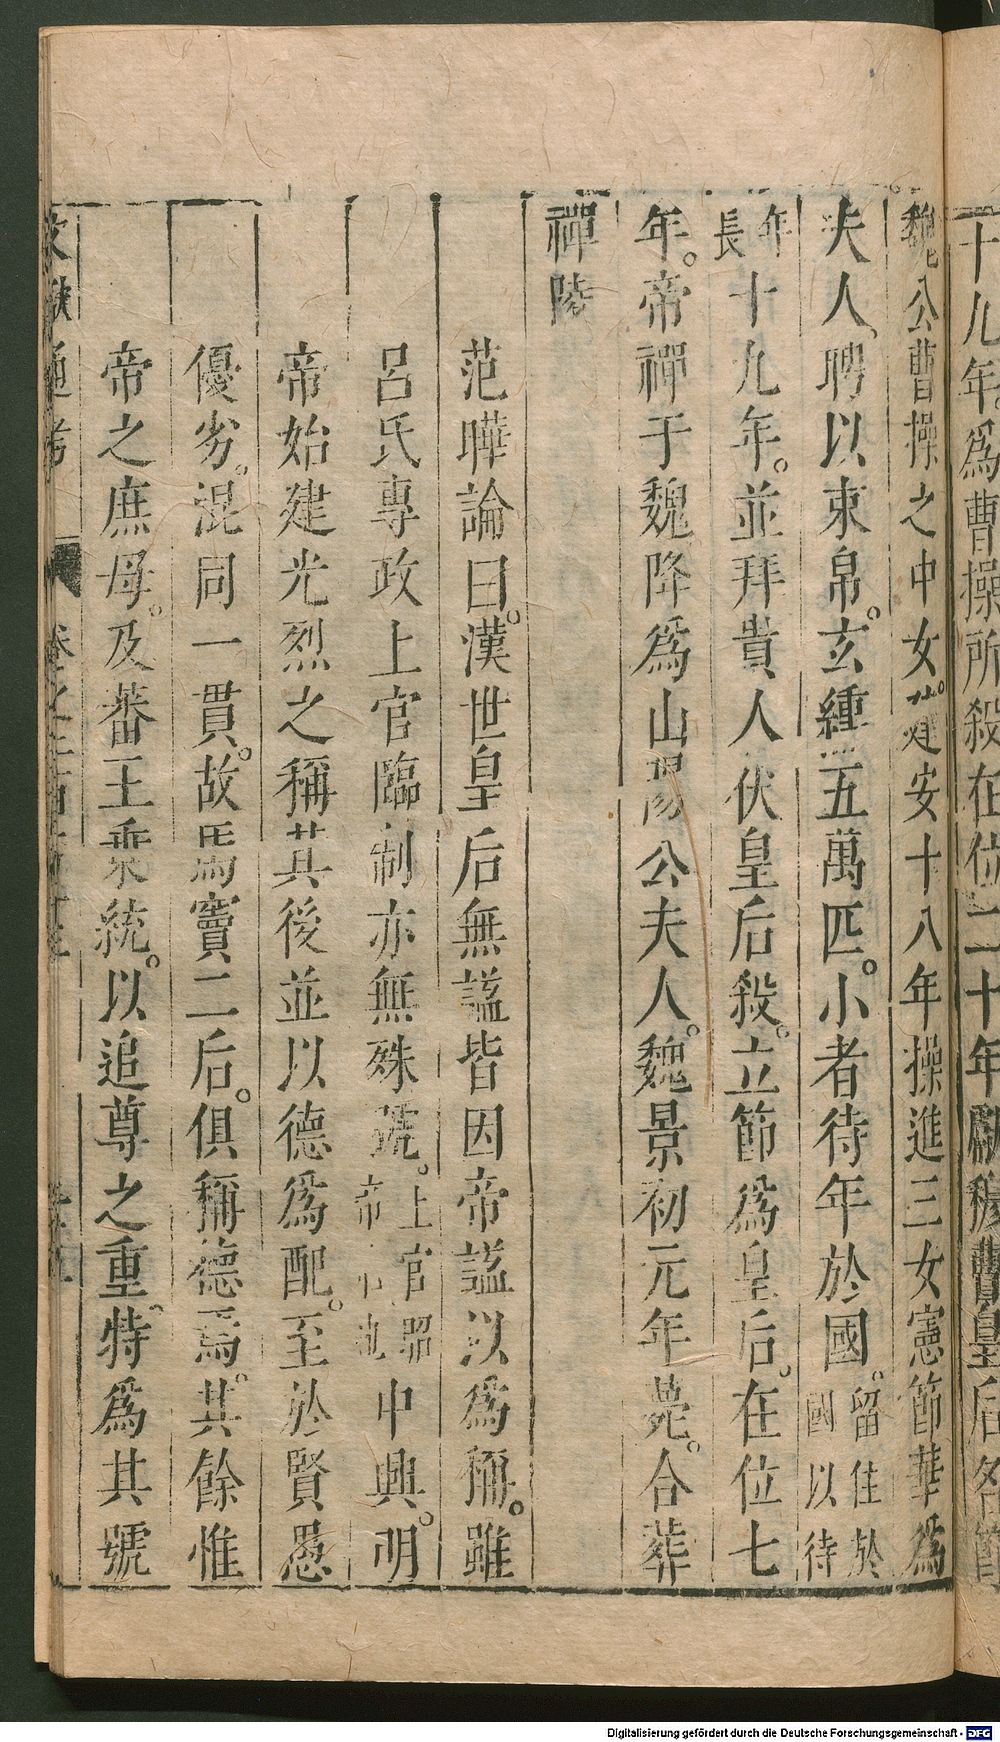 十九年。爲曹操所殺在位二十年獻穆曹皇后名節
魏公曹操之中女。建安十八年操進三女憲節華爲
夫人。聘以束帛。玄纁五萬匹。小者待年於國。留住於國以待
年長十九年。並拜貴人伏皇后殺。立節爲皇后。在位七
年。帝禪于魏降爲山陽公夫人。魏景初元年薨。合葬
禪陵
范曄論曰。漢世皇后無謚皆因帝謚以爲稱。雖
呂氏專政上官臨制亦無殊號。上官昭帝后也中興。明
帝始建光烈之稱其後並以德爲配。至於賢愚
優劣。混同一貫。故馬竇二后。俱稱德焉。其餘惟
帝之庶母。及蕃王承統。以追尊之重。特爲其號
文獻通考
Digitalisierung gefördert durch die Deutsche Forschungsgemeinschaft - DFG